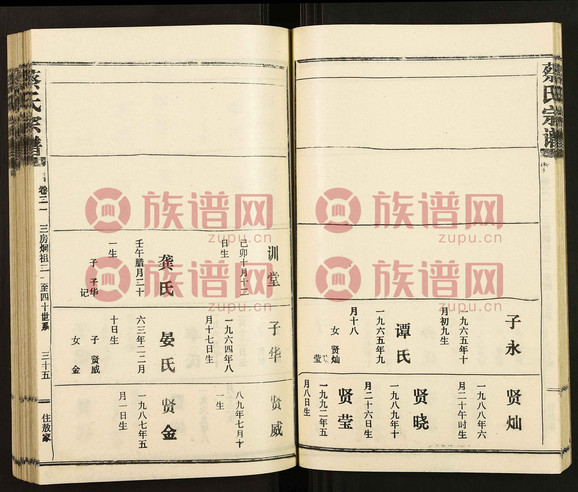 蔡氏宗谱
子永
一九六五年十
月初九生
谭氏
一九六五年九
月十八
女 贤灿
莹
贤灿
一九八八年六
月二十午时生
贤晓
一九八九年十
月二十六日生
贤莹
一九九二年五
月八日生
训堂
己卯十月十二
日生
龚氏
壬午腊月二十
一生
子 子华
记
子华
一九六四年八
月十七日生
晏氏
六三年二月
十日生
子 贤威
女 金
贤威
八九年七月十
一生
贤金
一九八七年五
月一日生
蔡氏宗谱
卷三
三房炯祖二一至四十世系
三十五
住放家
族谱网
zupu.cn
族谱网
zupu.cn
族谱网
zupu.cn
族谱网
zupu.cn